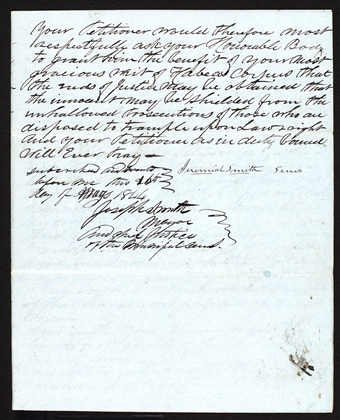 Your Petitioner would therefore most
respectfully ask your Honorable Body
to grant him the benefit of your most
gracious writ of Habeas Corpus that
the ends of Justice may be obtained that
the innocent may be shielded from the
unhallowed prosecutions of those who are
disposed to trample upon Law & right
and your Petitioner as in duty bound
Will Ever Pray—
subscribed and sworn to Jeremiah Smith Senr
before me this 16th
day of May 1844
Joseph Smith
Mayor
and Chief Justice
of the Municipal Court.